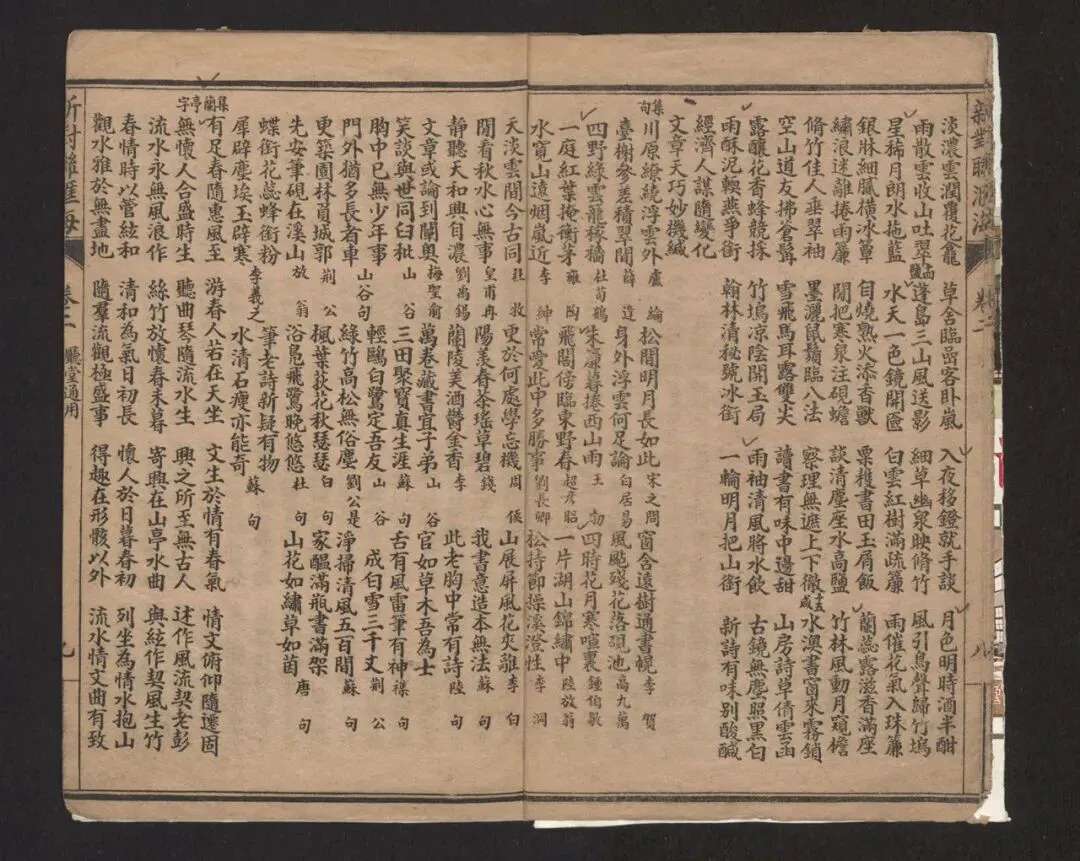 新對聯滙海
卷二
八
淡濃雲潤覆花龕 草舍臨嵒客卧嵐 入夜移鐙就手談 月色明時酒半酣
雨散雲收山吐翠 蓬島三山風送影 細草幽泉映脩竹 風引鳥聲歸竹塢
星稀月朗水拖藍 水天一色鏡開匳 白雲紅樹滿疏簾 雨催花氣入珠簾
銀牀細膩橫冰簟 自燒熟火添香獸 栗書田玉屑飯 蘭蕊露滋香滿座
繡浪迷離捲雨簾 閒把寒泉注硯蟾 談清塵座水高鹽 竹林風動月窺檐
脩竹佳人垂翠袖 墨灑鼠鬚臨八法 察理無遮上下徹 水澳書窗來霧鎖
空山道友拂倉髯 雪飛馬耳露雙尖 讀書有味中邊甜 山房詩草倩雲函
露釀花香蜂競採 竹塢凉陰開玉局 雨袖清風將水飲 古鏡無塵照黑白
雨酥泥輭燕爭銜 翰林清秘號冰銜 一輪明月把山銜 新詩有味别酸醎
經濟人謀隨變化
文章天巧妙機緘
集句
川原繚繞浮雲外 盧綸 松間明月長如此 宋之問 窗含遠樹通書幌 李賀
臺榭參差積翠間 薛逢 身外浮雲何足論 白居易 風颭殘花落硯池 高九萬
四野綠雲籠稼穡 杜荀鶴 朱簾暮捲西山雨 王勃 四時花月寒喧裏 鍾伯敬
一庭紅葉掩衡茅 雍陶 飛閣傍臨東野春 趙彦昭 一片湖山錦繡中 陸放翁
水寬山遠烟嵐近 李紳 常愛此中多勝事 劉長卿 松持節操溪澄性 李洞
天淡雲閒今古同 杜牧 更於何處學忘機 周 山展屏風花夾離 李白
閒看秋水心無事 皇甫冉 陽羡春茶瑤草碧 錢 我書意造本無法 蘇句
靜聽天和興自濃 劉禹錫 蘭陵美酒鬱金香 李 此老胸中常有詩 陸句
文章或論到閫奧 梅聖俞 萬卷藏書宜子弟 山谷 官如草木吾為士
笑談與世同臼秕 山谷 三田聚寳真生涯 蘇句 舌有風雷筆有神 襍句
胸中已無少年事 山谷句 輕鷗白鷺定吾友 山谷 成白雪三千丈 荆公
門外猶多長者車 綠竹高松無俗塵 劉公是 淨掃清風五百間 蘇句
更築園林員城郭 荆公 楓葉荻花秋瑟瑟 白句 家醞滿瓶書滿架
先安筆硯在溪山 放翁 浴鳧飛鷺晚悠悠 杜句 山花如繡草如茵 唐句
蝶銜花蕊蜂銜粉 李義之 筆老詩新疑有物
犀辟塵埃玉辟寒 水清石瘦亦能奇 蘇句
集蘭亭字
有足春隨惠風至 游春人若在天坐 文生於情有春氣 情文俯仰隨遷固
無懷人合盛時生 聽曲琴隨流水生 興之所至無古人 述作風流契老彭
流水永無風浪作 絲竹放懷春未暮 寄興在山亭水曲 與絃作契風生竹
春情時以管絃和 清和為氣日初長 懷人於日暮春初 列坐為情水抱山
觀水雅於無盡地 隨羣流觀極盛事 得趣在形骸以外 流水情文曲有致
新對聯滙海
卷二 廳堂通用
九